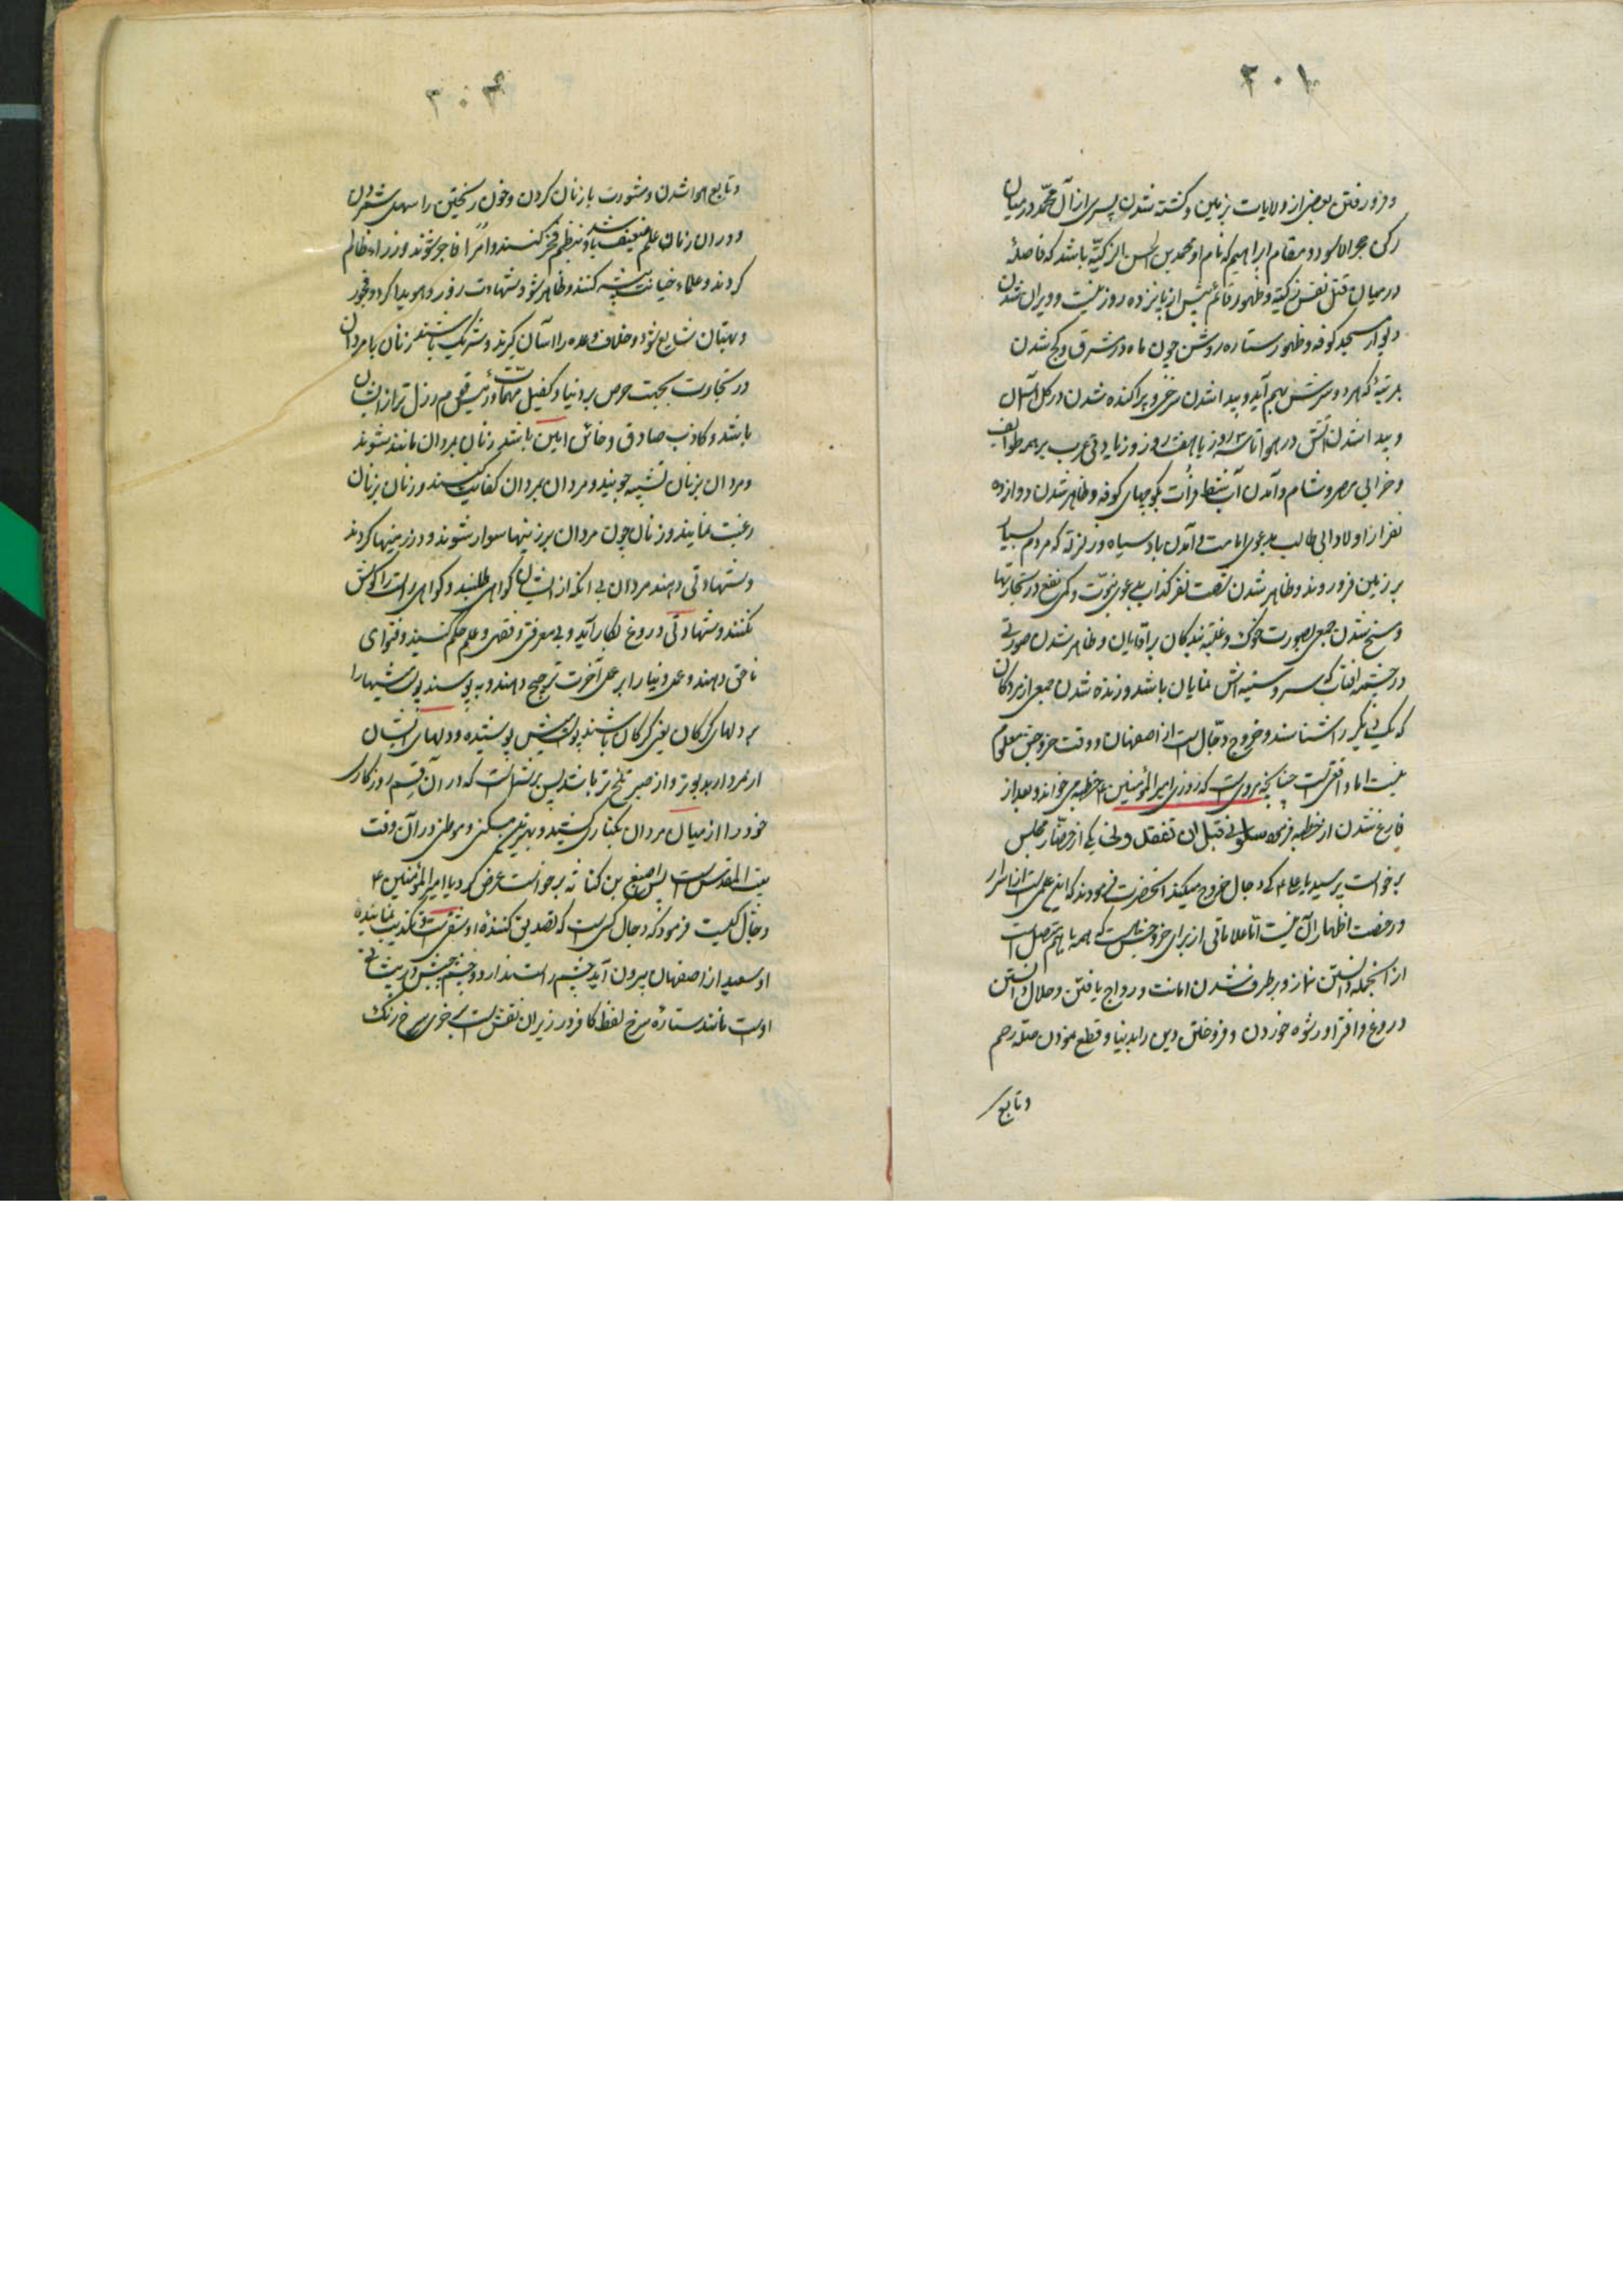 ۳۰۱
و فرو رفتن بعضی از ولایات بزمین و کشته شدن پسری از آل محمّد در میان
رکن حجرالاسود و مقام ابراهیم که نام او محمد بن الحسن الزکیّه باشد که فاصلهٔ
در میان قتل نفس زکیّه و ظهور قائم بیش از پانزده روز نیست و ویران شدن
دیوار مسجد کوفه و ظهور ستاره روشن چون ماه در مشرق و کج شدن
بمرتبهٔ که هر دو سرش بهم آید و پیدا شدن سرخی و پراکنده شدن در کل آسمان
و پیدا شدن آتش در هوا تا سه روز یا هفت روز و زیادتی عرب بر همه طوایف
و خرابی مصر و شام و آمدن آب شط فرات بکوچهای کوفه و ظاهر شدن دوازده
نفر از اولاد ابی طالب بدعوی امامت و آمدن باد سیاه و زلزله که مردم بسیار
بر زمین فرو روند و ظاهر شدن شصت نفر کذاب بدعوی نبوّت و کمی نفع در تجارتها
و مسخ شدن جمعی بصورت خوک و غلبه بندکان بر اقایان و ظاهر شدن صورتی
در چشمه افتاب که سر و سینه اش نمایان باشد و زنده شدن جمعی از مردکان
که یکدیگر را شناسند و خروج دجّال است از اصفهان و وقت خروجش معلوم
نیست اما واقعی است چنانچه مرویست که روزی امیر المؤمنین ۴ خطبه می خواند و بعد از
فارغ شدن از خطبه فرمود سلونی قبل ان تفقدونی یکی از حضّار مجلس
برخواست پرسید یا علی ۴ کی دجال خروج میکند انحضرت فرمودند که این علمی است از اسرار
و رخصت اظهار آن نیست اما علاماتی از برای خروجش هست که همه با هم متصل است
از انجمله دانستن نماز و برطرف شدن امانت و رواج یافتن و حلال دانستن
دروغ و افترا و رشوه خوردن و فروختن دین را بدنیا و قطع نمودن صلهٔ رحم
و تابع
۳۰۲
و تابع هوا شدن و مشورت با زنان کردن و خون ریختن را سهل شمردن
و در ان زمان علم ضعیف باشد و بظلم فخر کنند و امرا فاجر شوند و وزراء ظالم
کردند و علماء خیانت پیشه کنند و ظاهر شود شهادت زور و هویدا کردد فجور
و بهتان شایع شود و خلاف وعده را اسان کیرند و شریک باشند زنان با مردان
در تجارت بجهت حرص بر دنیا و کفیل مهمات و رئیس قوم رذل تر از ایشان
باشد و کاذب صادق و خائن امین باشد زنان بمردان مانند شوند
و مردان بزنان تشبیه جویند و مردان بمردان کفایت کنند و زنان بزنان
رغبت نمایند و زنان چون مردان بر زینها سوار شوند و در زمینها کردند
و شهادتی دهند مردان بی آنکه از ایشان کواهی طلبند و کواهی راست را کوش
نکنند و شهادتی دروغ بکار آید و بی معرفتی و فقهی و علم حکم کنند و فتوای
ناحق دهند و عمل دنیا را بر عمل آخرت ترجیح دهند و بپوشند پوست میشها را
بر دلهای کرکان یعنی کرکان باشند پوست میش پوشیده و دلهای ایشان
از مردار بدبوتر و از صبر تلخ تر باشد پس بهتر آنست که در آن قسم روزکاری
خود را از میان مردان بکناری کشید و بهترین مسکنی و موطنی در آن وقت
بیت المقدس است پس اصبغ بن کنانه برخواست عرض کرد یا امیر المؤمنین ۴
دجّال کیست فرمود که دجال کسی است که تصدیق کنندهٔ او شقی است و تکذیب نمایندهٔ
او سعید از اصفهان بیرون آید چشم راست ندارد و چشم چپش در پیشانی
اوست مانند ستاره سرخ لفظ کافر در زیر ان نقش است بخوی سرخ رنک